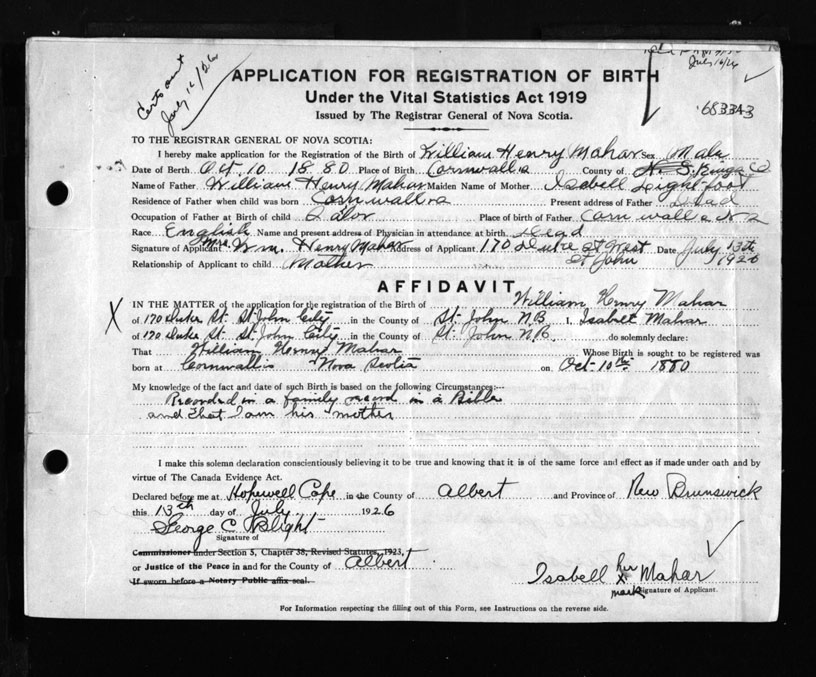 Certs sent
July 16/26
July 16/26
683343
APPLICATION FOR REGISTRATION OF BIRTH
Under the Vital Statistics Act 1919
Issued by The Registrar General of Nova Scotia.
TO THE REGISTRAR GENERAL OF NOVA SCOTIA:
I hereby make application for the Registration of the Birth of William Henry Mahar Sex Male
Date of Birth Oct. 10 1880 Place of Birth Cornwallis County of N. S. Kings Co
Name of Father William Henry Mahar Maiden Name of Mother Isabell Lightfoot
Residence of Father when child was born Cornwallis Present address of Father Dead
Occupation of Father at Birth of child Place of birth of Father Cornwallis N S
Race English Name and present address of Physician in attendance at birth Dead
Signature of Applicant Mrs. Wm. Henry Mahar Address of Applicant 170 Duke St West Date July 13th
Relationship of Applicant to child Mother St John 1926
AFFIDAVIT
X IN THE MATTER of the application for the registration of the Birth of William Henry Mahar
of 170 Duke St. St. John City in the County of St. John N.B. I, Isabel Mahar
of 170 Duke St. St. John City in the County of St. John N.B. do solemnly declare:
That William Henry Mahar Whose Birth is sought to be registered was
born at Cornwallis Nova Scotia on Oct-10th 1880
My knowledge of the fact and date of such Birth is based on the following Circumstances:-
Recorded in a family record in a Bible
and that I am his mother
I make this solemn declaration conscientiously believing it to be true and knowing that it is of the same force and effect as if made under oath and by
virtue of The Canada Evidence Act.
Declared before me at Hopewell Cape in the County of Albert and Province of New Brunswick
this 13th day of July 1926
George C Blight
Signature of
Commissioner under Section 5, Chapter 38, Revised Statutes, 1923,
or Justice of the Peace in and for the County of Albert
If sworn before a Notary Public affix seal.
Isabell her X mark Mahar
Signature of Applicant.
For Information respecting the filling out of this Form, see Instructions on the reverse side.